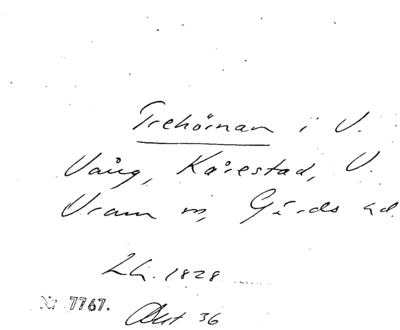 Trehörnan i V.
Vång, Kårestad, V.
Vram m, Gärds hd.
Lh. 1828
Nr 7767. Akt 36